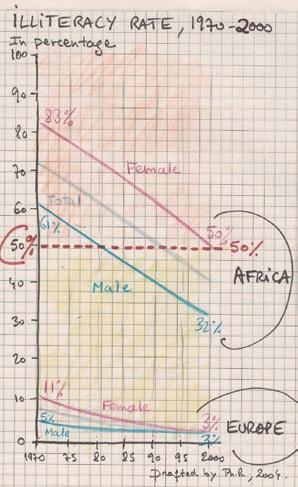 ILLITERACY RATE, 1970-2000
In percentage
100
90
83%
80
Female
70
Total
60
61%
50%
50%
50%
AFRICA
40
Male
30
32%
20
11%
10
Female
3%
EUROPE
5%
Male
0
3%
1970 75 80 85 90 95 2000
Drafted by Ph.R., 2004.